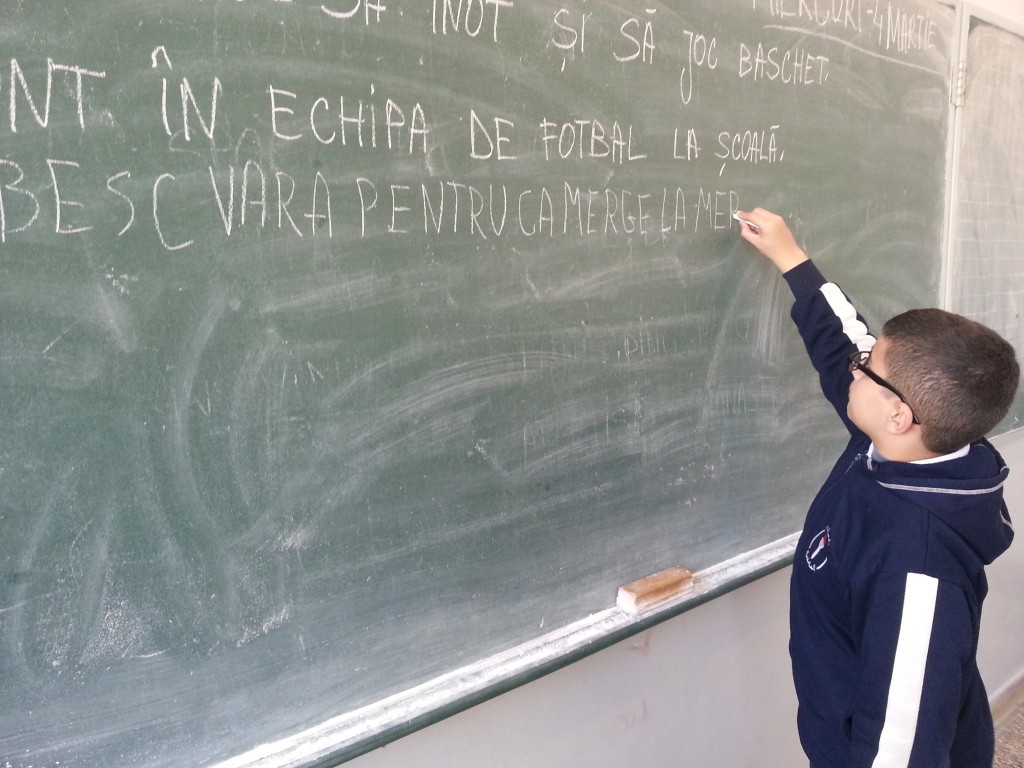 MIERCURI - 4 MARTIE
SĂ ÎNOT ȘI SĂ JOC BASCHET.
NT ÎN ECHIPA DE FOTBAL LA ȘCOALĂ.
BESC VARA PENTRU CA MERGE LA MER